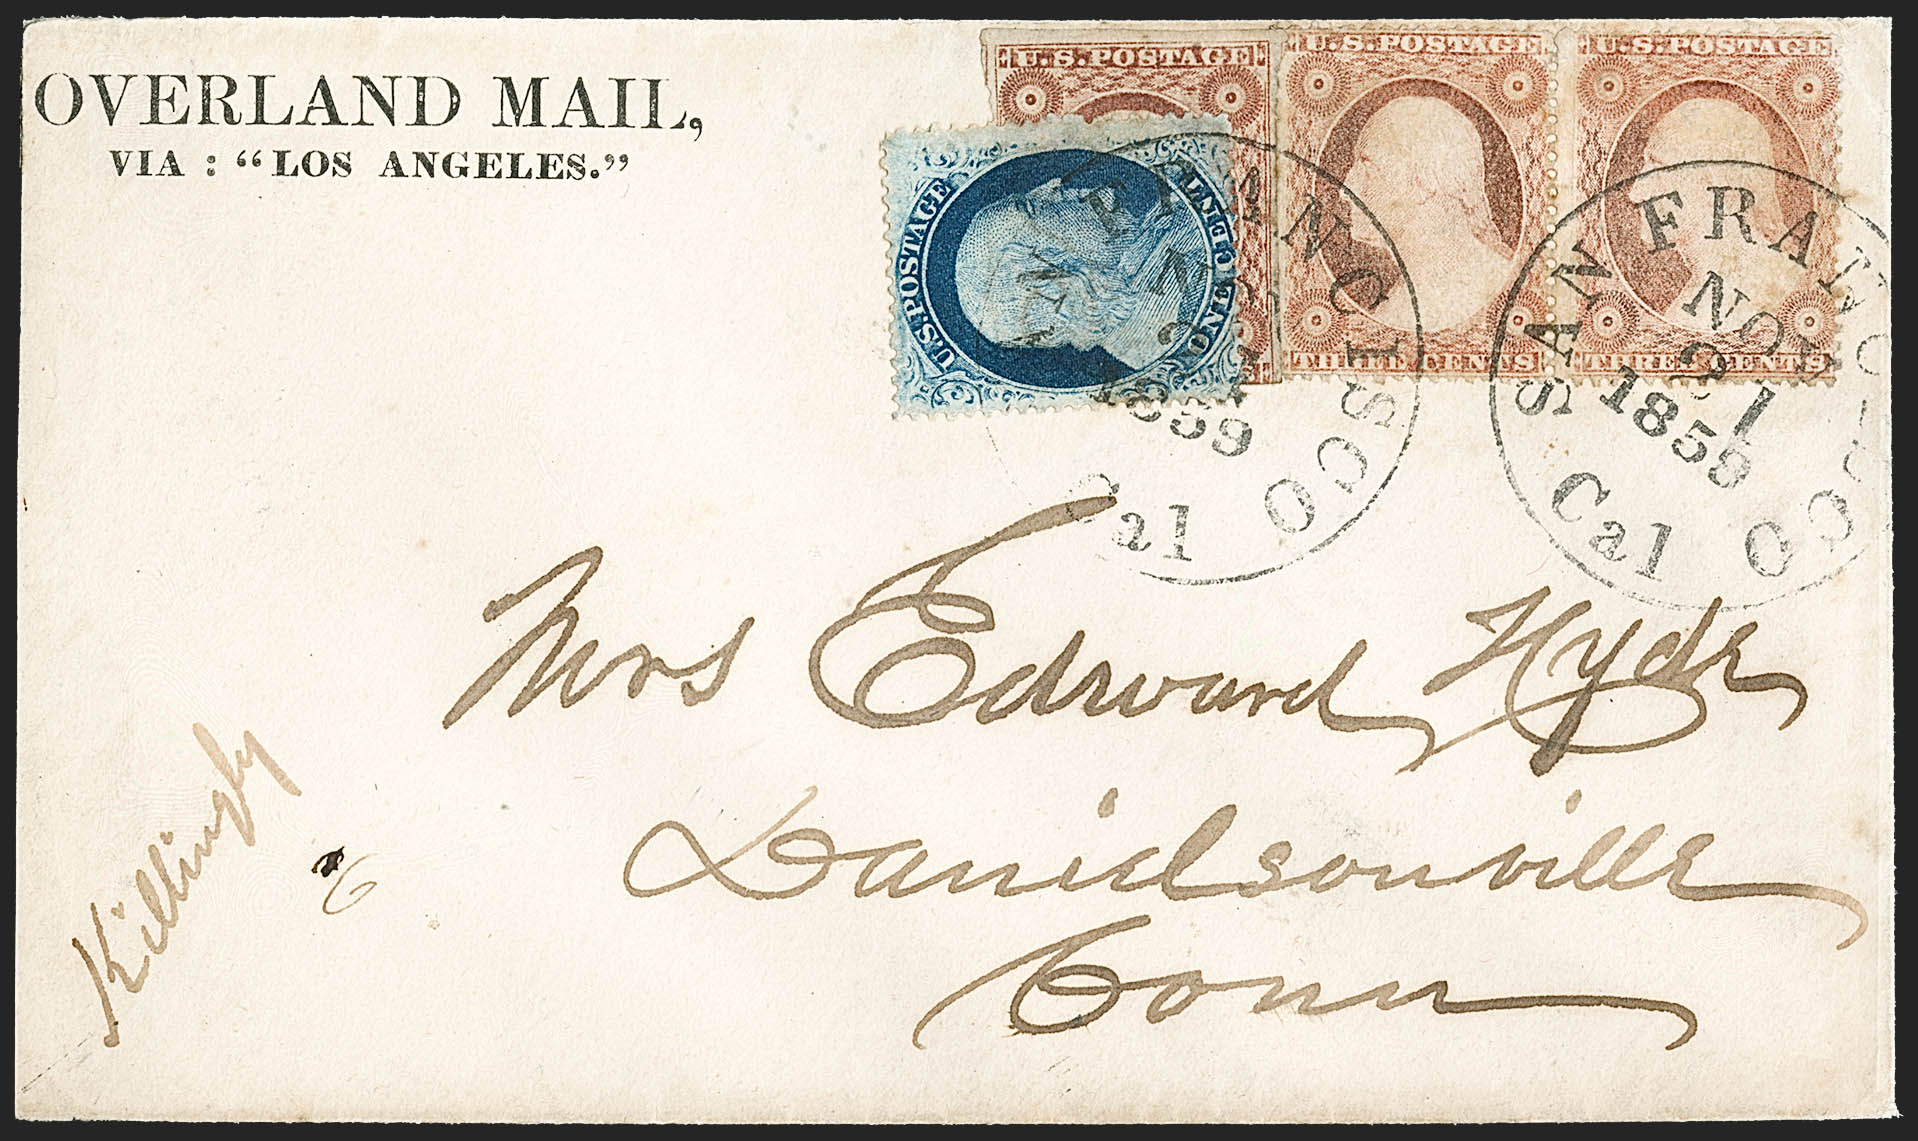 OVERLAND MAIL,
VIA : “LOS ANGELES.”
U.S. POSTAGE
U.S. POSTAGE
THREE CENTS
U.S. POSTAGE
THREE CENTS
U.S. POSTAGE
ONE CENT
SAN FRANCISCO
NOV
21
1859
Cal
SAN FRANCISCO
NOV
21
1859
Cal
Mrs Edward Hyde
Danielsonville
Conn
Killingly
6